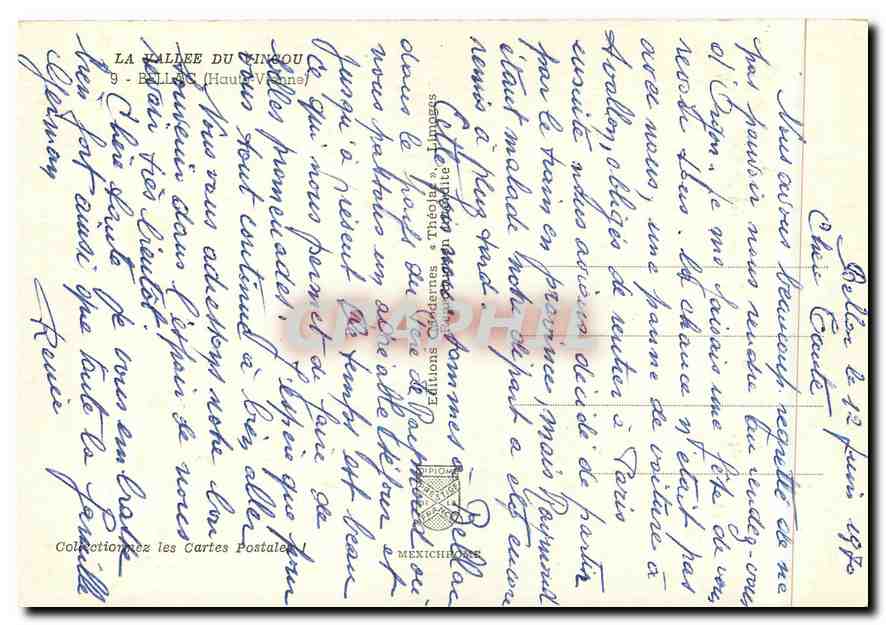 LA VALLEE DU VINCOU
9 - BELLAC (Haute-Vienne)
Editions Modernes « Théojac », Limoges
Reproduction interdite
DIPLOME
PRESTIGE
DE LA
FRANCE
MEXICHROME
Collectionnez les Cartes Postales !
CPAPHIL
Bellac le 12 Juin 1970
Chère Tante
Nous avons beaucoup regretté de ne
pas pouvoir nous rendre au rendez-vous
d'Irya. je me faisais une fête de vous
revoir tous. la chance n'était pas
avec nous, une panne de voiture à
Avallon, obligés de rentrer à Paris
ensuite nous avions décidé de partir
par le train en province, mais Raymond
étant malade notre départ a été encore
remis à plus tard.
Enfin nous sommes à Bellac
dans le pays du père de Raymond où
nous passons un agréable séjour et
jusqu'à présent le temps est beau
ce qui nous permet de faire de
belles promenades. J'espère que pour
vous tout continue à bien aller
Nous vous adressons notre bon
souvenir dans l'espoir de vous
revoir très bientôt.
Chère tante je vous embrasse
bien fort ainsi que toute la famille
Germay
Renée